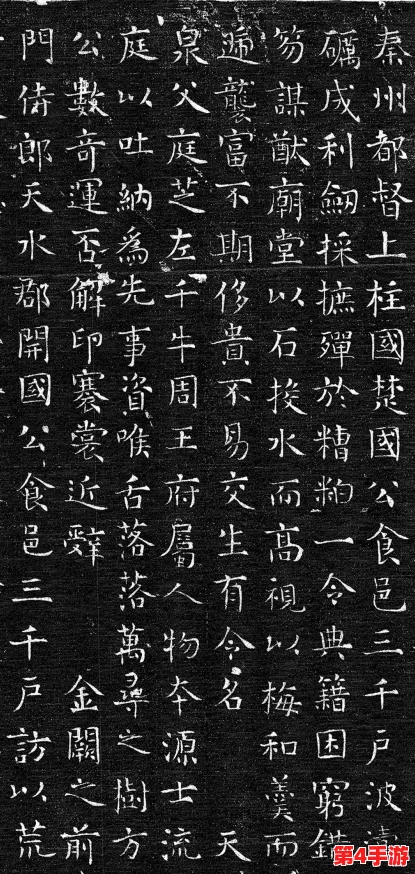 秦州都督上柱國楚國公食邑三千戶波濤
礪成利劒採摭殫於糟粕一令典籍困窮錯
笏謀猷廟堂以石投水而高視以梅和羹而
遞襲富不期侈貴不易交生有令名 天
泉父庭芝左千牛周王府屬人物本源士流
庭以吐納爲先事資喉舌落落萬尋之樹方
公數奇運否解印褰裳近辭 金闕之前
門侍郎天水郡開國公食邑三千戶訪以荒
第4手游